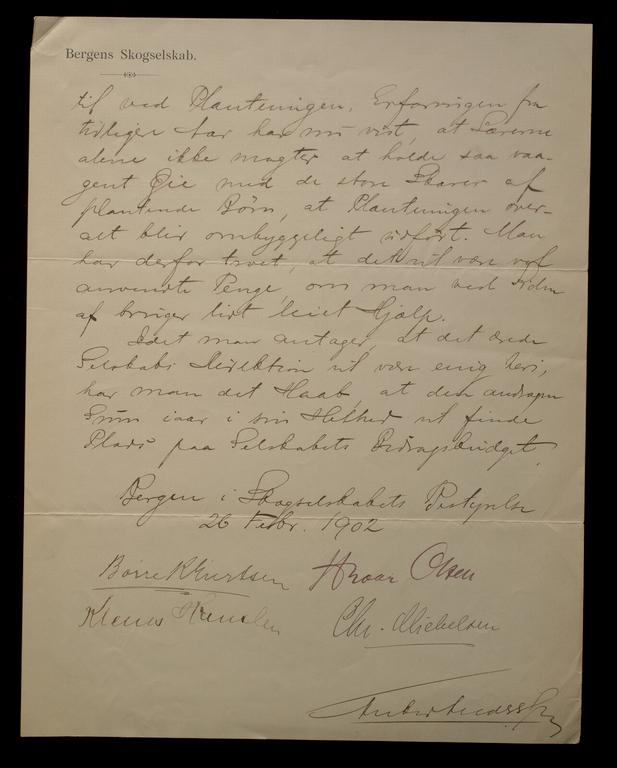 Bergens Skogselskab.
til ved Plantningen. Erfaringen fra
tidligere Aar har nu vist, at Lærerne
alene ikke magter at holde saa vaa-
gent Øie med de store Skarer af
plantende Børn, at Plantningen over-
alt blir omhyggeligt udført. Man
har derfor troet, at det vil være vel
anvendte Penge, om man ved Siden
af bruger lidt leiet Hjælp.
Idet man antager, at det ærede
Selskabs Direktion vil være enig heri,
har man det Haab, at den andragne
Sum iaar i sin Helhed vil finde
Plads paa Selskabets Bidragsbudget.
Bergen i Skogselskabets Bestyrelse
26 Febr. 1902
Børre Giertsen Hroar Olsen
Klaus Chr. Michelsen